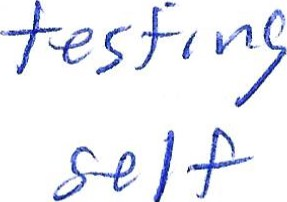 testing
self